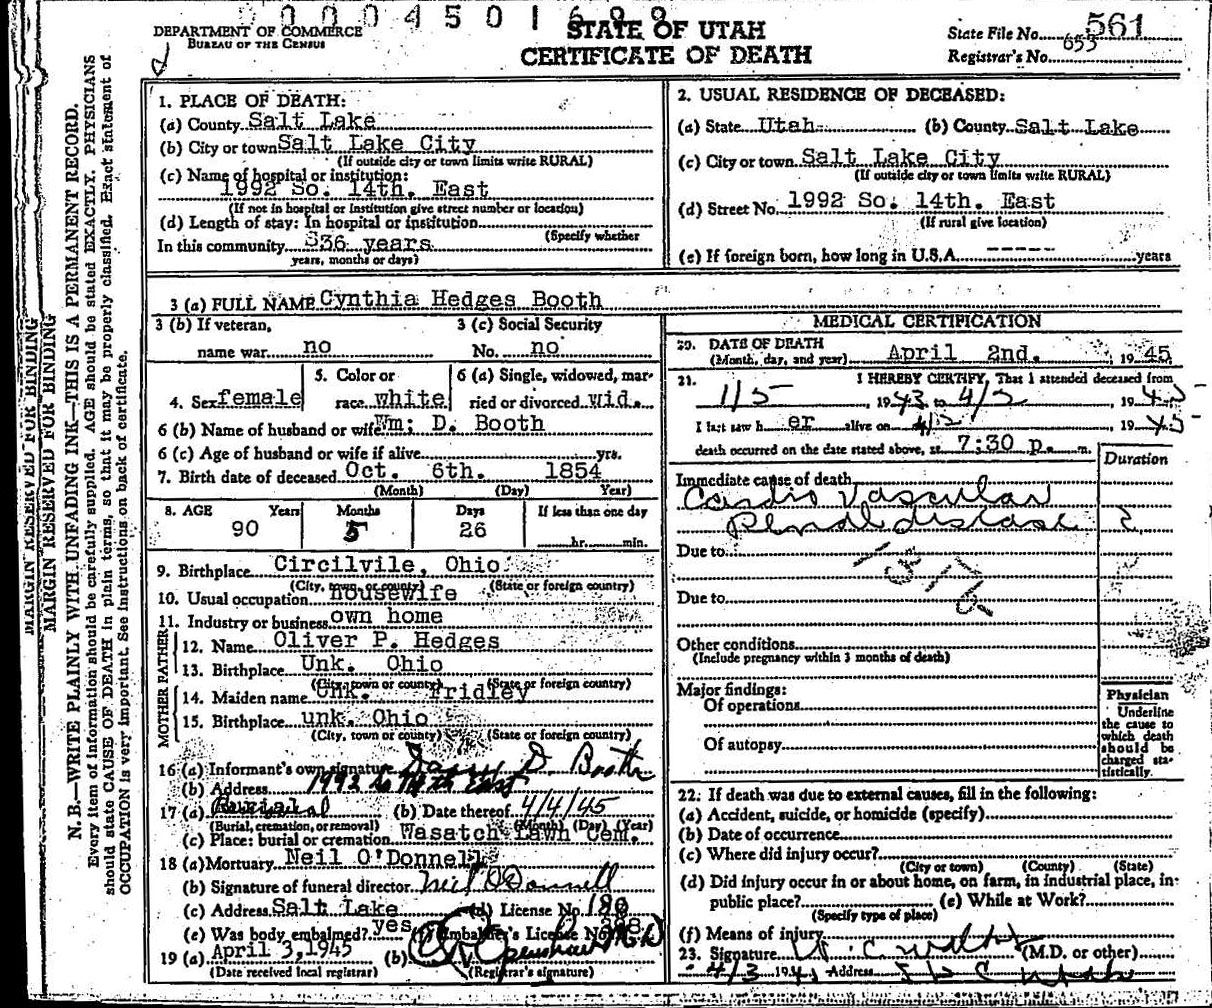 DEPARTMENT OF COMMERCE
BUREAU OF THE CENSUS
STATE OF UTAH
CERTIFICATE OF DEATH
State File No. 561
Registrar's No. 653
MARGIN RESERVED FOR BINDING
MARGIN RESERVED FOR BINDING
N. B.—WRITE PLAINLY WITH UNFADING INK—THIS IS A PERMANENT RECORD.
Every item of information should be carefully supplied. AGE should be stated EXACTLY. PHYSICIANS
should state CAUSE OF DEATH in plain terms, so that it may be properly classified. Exact statement of
OCCUPATION is very important. See instructions on back of certificate.
1. PLACE OF DEATH:
(a) County Salt Lake
(b) City or town Salt Lake City
(If outside city or town limits write RURAL)
(c) Name of hospital or institution:
1992 So. 14th. East
(If not in hospital or institution give street number or location)
(d) Length of stay: In hospital or institution
(Specify whether
In this community 36 years
years, months or days)
2. USUAL RESIDENCE OF DECEASED:
(a) State Utah (b) County Salt Lake
(c) City or town Salt Lake City
(If outside city or town limits write RURAL)
(d) Street No. 1992 So. 14th. East
(If rural give location)
(e) If foreign born, how long in U.S.A. ------ years
3 (a) FULL NAME Cynthia Hedges Booth
3 (b) If veteran, 3 (c) Social Security
name war no No. no
4. Sex female 5. Color or race white 6 (a) Single, widowed, married or divorced wid.
6 (b) Name of husband or wife Wm; D. Booth
6 (c) Age of husband or wife if alive yrs.
7. Birth date of deceased Oct. 6th. 1854
(Month) (Day) Year)
8. AGE Years Months Days If less than one day
90 5 26 hr. min.
9. Birthplace Circilvile, Ohio
(City, town, or county) (State or foreign country)
10. Usual occupation housewife
11. Industry or business own home
FATHER
12. Name Oliver P. Hedges
13. Birthplace Unk. Ohio
(City, town or county) (State or foreign country)
MOTHER
14. Maiden name Unk. Fridley
15. Birthplace unk. Ohio
(City, town, or county) (State or foreign country)
16 (a) Informant's own signature D. Booth
(b) Address 1992 So 14th East
17 (a) Burial (b) Date thereof 4/4/45
(Burial, cremation, or removal) (Month) (Day) (Year)
(c) Place: burial or cremation Wasatch Lawn Cem.
18 (a) Mortuary Neil O'Donnell
(b) Signature of funeral director Neil O'Donnell
(c) Address Salt Lake (d) License No. 180
(e) Was body embalmed? yes (f) Embalmer's License No.
19 (a) April 3, 1945 (b)
(Date received local registrar) (Registrar's signature)
MEDICAL CERTIFICATION
20. DATE OF DEATH
(Month, day, and year) April 2nd. , 1945
21. I HEREBY CERTIFY, That I attended deceased from
1/5 , 1943 to 4/2 , 1945
I last saw h er alive on 4/2 , 1945
death occurred on the date stated above, at 7:30 p. m.
Duration
Immediate cause of death
Cardio Vascular
Renal disease 2
Due to
Due to
Other conditions
(Include pregnancy within 3 months of death)
Major findings:
Of operations
Of autopsy
Physician
Underline
the cause to
which death
should be
charged sta-
tistically.
22. If death was due to external causes, fill in the following:
(a) Accident, suicide, or homicide (specify)
(b) Date of occurrence
(c) Where did injury occur?
(City or town) (County) (State)
(d) Did injury occur in or about home, on farm, in industrial place, in
public place? (e) While at Work?
(Specify type of place)
(f) Means of injury
23. Signature (M.D. or other)
4/3 194 Address